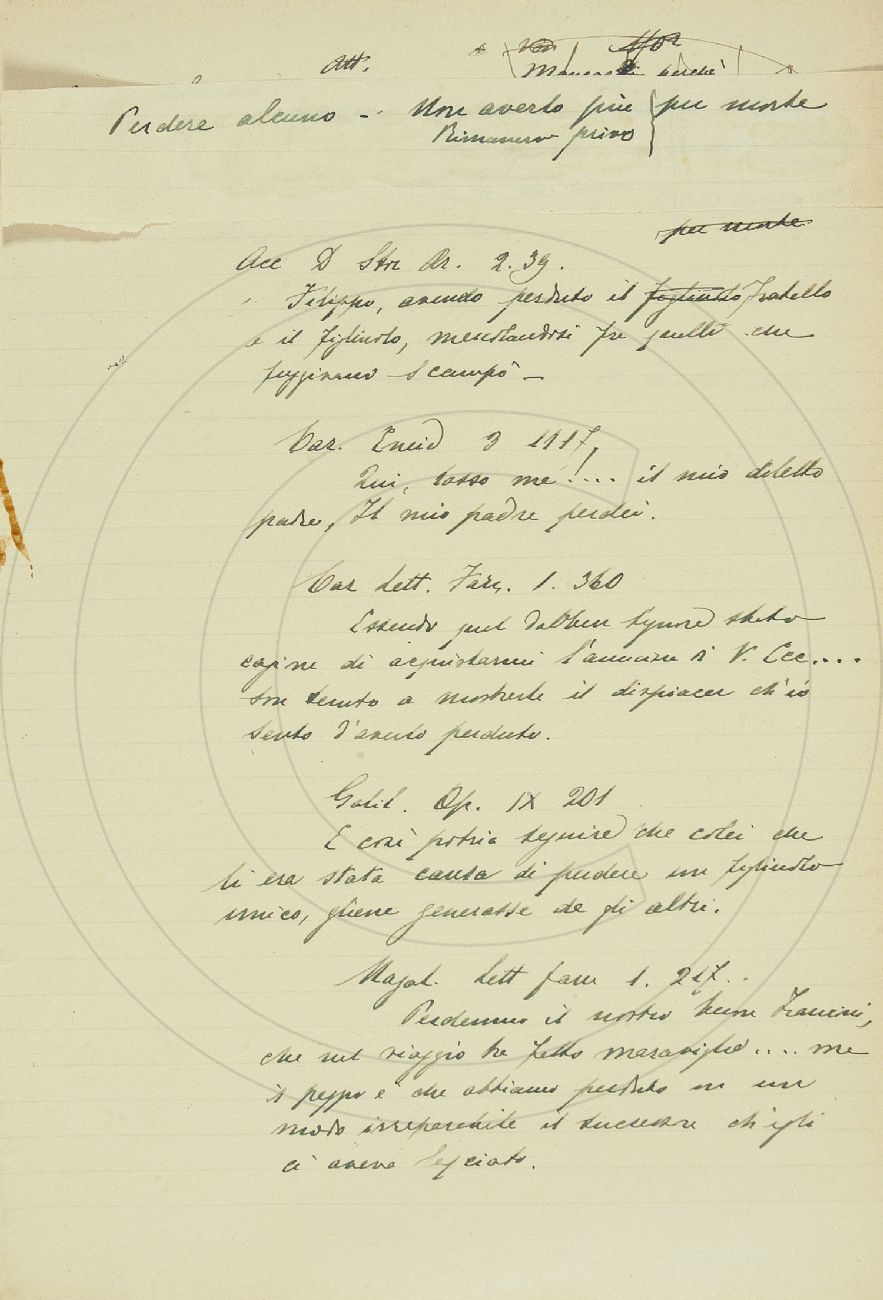 Att.
perchè
Perdere alcuno — Non averlo più per morte
Rimanerne privo
per morte
Acc D Str Ar. 2. 39.
Filippo, avendo perduto il figliuolo fratello
e il figliuolo, mescolandosi fra quelli che
fuggivano scampò —
Car. Eneid 3 1117,
Qui, lasso me!... il mio diletto
padre, Il mio padre perdei.
Car Lett. Farn. 1. 360
Essendo quel dabben Signore stato
cagione di acquistarmi l'amicizia di V. Ecc....
son tenuto a mostrarle il dispiacer ch'io
sento d'averlo perduto.
Galil. Op. IX 201
E così potria seguire che colei che
li era stata causa di perdere un figliuolo
unico, gliene generasse de gli altri.
Magal. Lett fam 1. 217.
Perdemmo il nostro buon
che nel viaggio ha fatto maraviglie.... ma
il peggio è che abbiamo perduto in un
modo irreparabile il successore ch'egli
ci aveva lasciato.